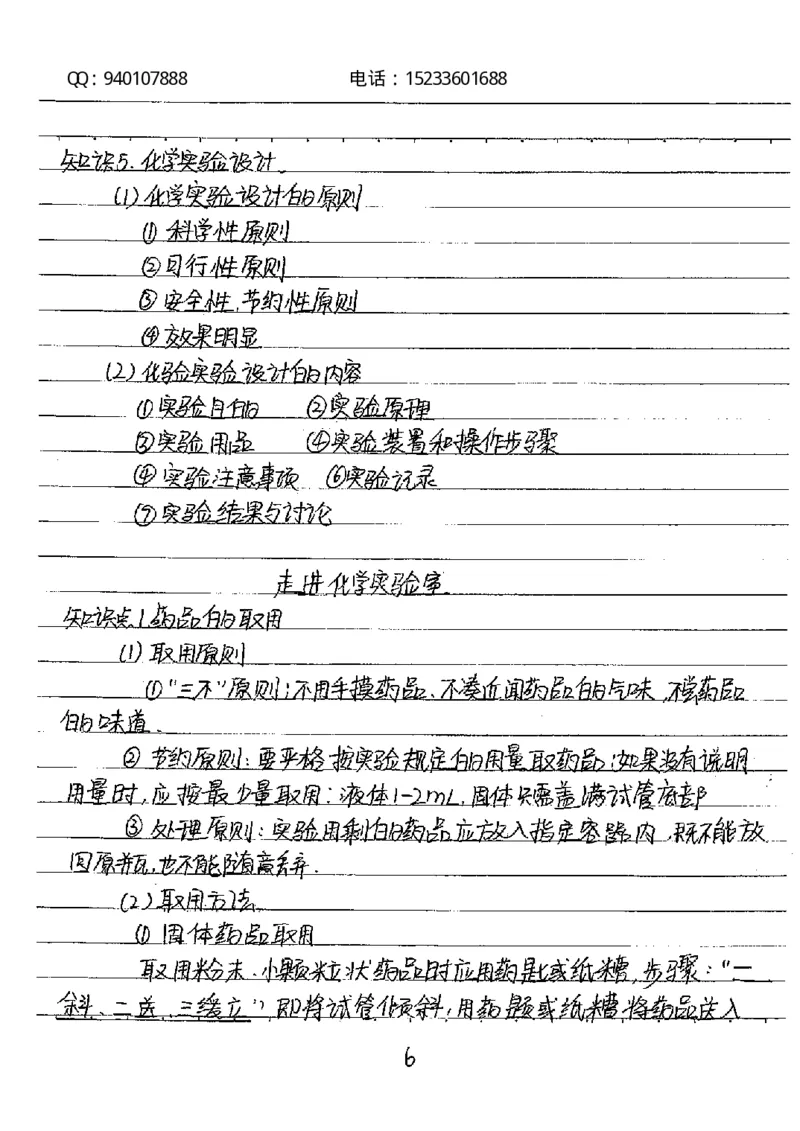 QQ：940107888 电话：15233601688
知识5.化学实验设计.
(1)化学实验设计的原则
①科学性原则
②可行性原则
③安全性,节约性原则
④效果明显
(2)化验实验设计的内容
①实验目的 ②实验原理
③实验用品 ④实验装置和操作步骤
④实验注意事项 ⑥实验记录
⑦实验结果与讨论
走进化学实验室
知识点1药品的取用
(1)取用原则
①"三不"原则:不用手摸药品、不凑近闻药品的气味,不尝药品
的味道.
②节约原则:要严格按实验规定的用量取药品;如果没有说明
用量时,应按最少量取用:液体1-2mL,固体只需盖满试管底部
③处理原则:实验用剩的药品应放入指定容器内,既不能放
回原瓶,也不能随意丢弃.
(2)取用方法
①固体药品取用
取用粉末、小颗粒状药品时应用药匙或纸槽,步骤:"一
斜、二送、三缓立"即将试管倾斜,用药匙或纸槽将药品送入
6